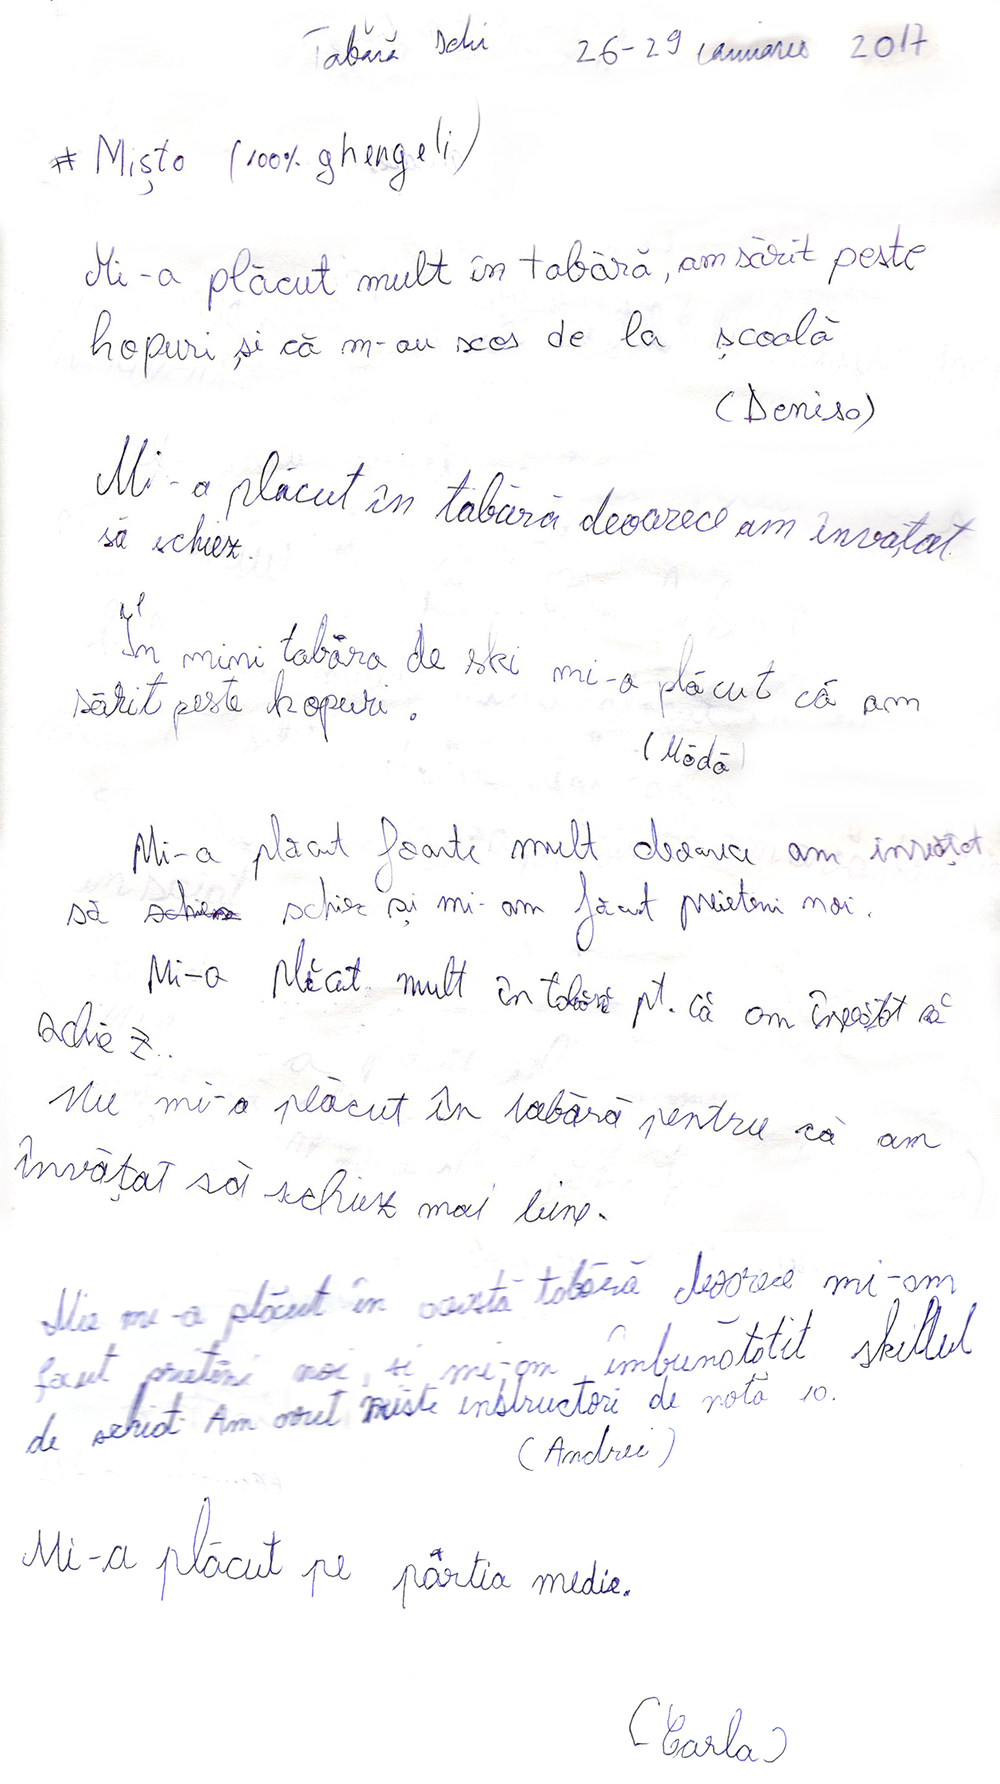 Tabără schi 26-29 ianuarie 2017
# Mișto (100% ghengeli)
Mi-a plăcut mult în tabără, am sărit peste
hopuri și că m-au scos de la școală
(Denisa)
Mi-a plăcut în tabără deoarece am învățat
să schiez.
În mini tabăra de ski mi-a plăcut că am
sărit peste hopuri.
(Mădă)
Mi-a plăcut foarte mult deoarece am învățat
să schiez schiez și mi-am făcut prieteni noi.
Mi-a plăcut mult în tabără pt. că am învățat să
schiez..
Mie mi-a plăcut în tabără pentru că am
învățat să schiez mai bine.
Mie mi-a plăcut în acestă tabără deoarece mi-am
făcut prieteni noi, și mi-am îmbunătățit skillul
de schiat. Am avut niste instructori de notă 10.
(Andrei)
Mi-a plăcut pe pârtia medie.
(Carla)